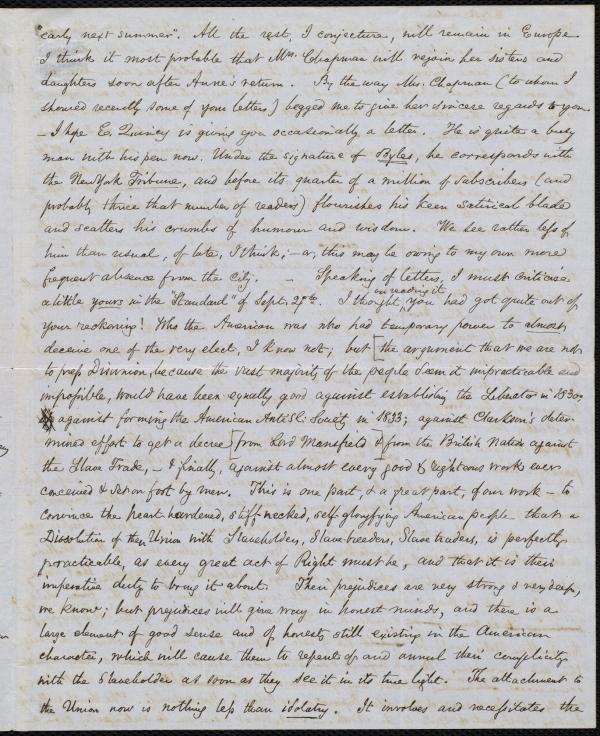 early next summer". All the rest, I conjecture, will remain in Europe.
I think it most probable that Mrs. Chapman will rejoin her sisters and
daughters soon after Anne's return. By the way Mrs. Chapman (to whom I
showed recently some of your letters) begged me to give her sincere regards to you.
– I hope E. Quincy is giving you occasionally a letter. He is quite a busy
man with his pen now. Under the signature of Byles, he corresponds with
the New York Tribune, and before its quarter of a million of subscribers (and
probably thrice that number of readers) flourishes his keen satirical blade
and scatters his crumbs of humour and wisdom. We see rather less of
him than usual, of late, I think; – or, this may be owing to my own more
frequent absence from the city. – Speaking of letters, I must criticise
a little yours in the "Standard" of Sept. 29th. I thought, in reading it, you had got quite out of
your reckoning! Who the American was who had temporary power to almost
deceive one of the very elect, I know not; but [the argument that we are not
to press Disunion, because the vast majority of the people deem it impracticable and
impossible, would have been equally good against establishing the Liberator in 1830;
against forming the American Anti Sl. Society in 1833; against Clarkson's deter-
mined effort to get a decree] from Lord Mansfield & from the British Nation against
the Slave Trade, – & finally, against almost every good & righteous work ever
conceived & set on foot by men. This is one part, & a great part, of our work – to
convince the heart-hardened, stiff-necked, self-glorifying American people that a
Dissolution of their Union with Slaveholders, Slave-breeders, Slave traders, is perfectly
practicable, as every great act of Right must be, and that it is their
imperative duty to bring it about. Their prejudices are very strong & very deep,
we know; but prejudices will give way in honest minds, and there is a
large element of good sense and of honesty still existing in the American
character, which will cause them to repent of and annul their complicity
with the Slaveholder as soon as they see it in its true light. The attachment to
the Union now is nothing less than idolatry. It involves and necessitates the